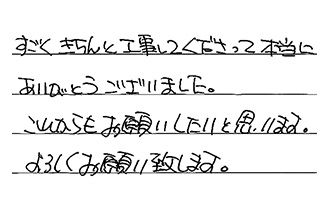 すごくきちんと工事してくださって本当に
ありがとうございました。
これからもお願いしたいと思います。
よろしくお願い致します。